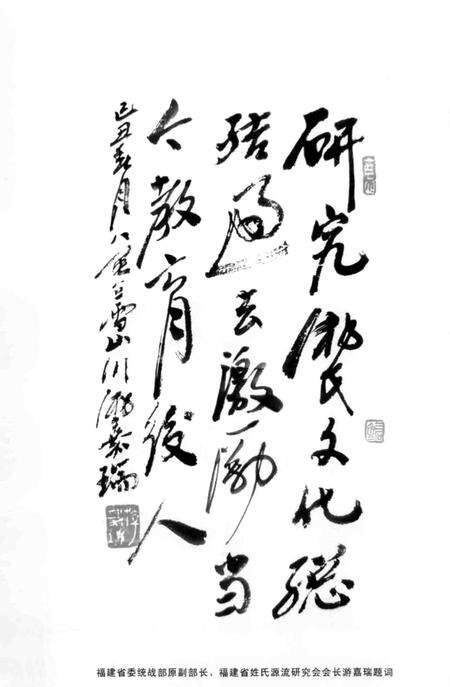 研究游氏文化總
結过去激励当
今教育後人
己丑春月八 雪山川游嘉瑞
福建省委统战部原副部长、福建省姓氏源流研究会会长游嘉瑞题词